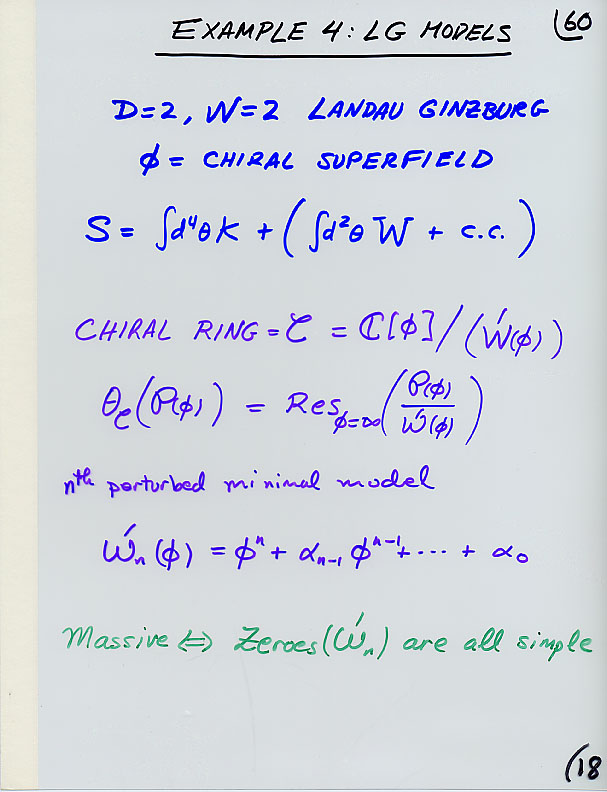 EXAMPLE 4: LG MODELS
(60
D=2, N=2 LANDAU GINZBURG
ϕ = CHIRAL SUPERFIELD
S = ∫d⁴θ K + ( ∫d²θ W + c.c. )
CHIRAL RING = 𝒞 = ℂ[ϕ]/(W′(ϕ))
θ_𝒞(P(ϕ)) = Res_{ϕ=∞}(P(ϕ)/W′(ϕ))
nᵗʰ perturbed minimal model
W′ₙ(ϕ) = ϕⁿ + αₙ₋₁ ϕⁿ⁻¹ + ··· + α₀
Massive ⇔ Zeroes(W′ₙ) are all simple
(18